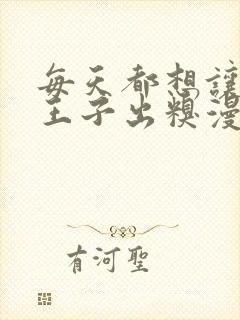 每天都想讓
王子出糗漫
有河聖